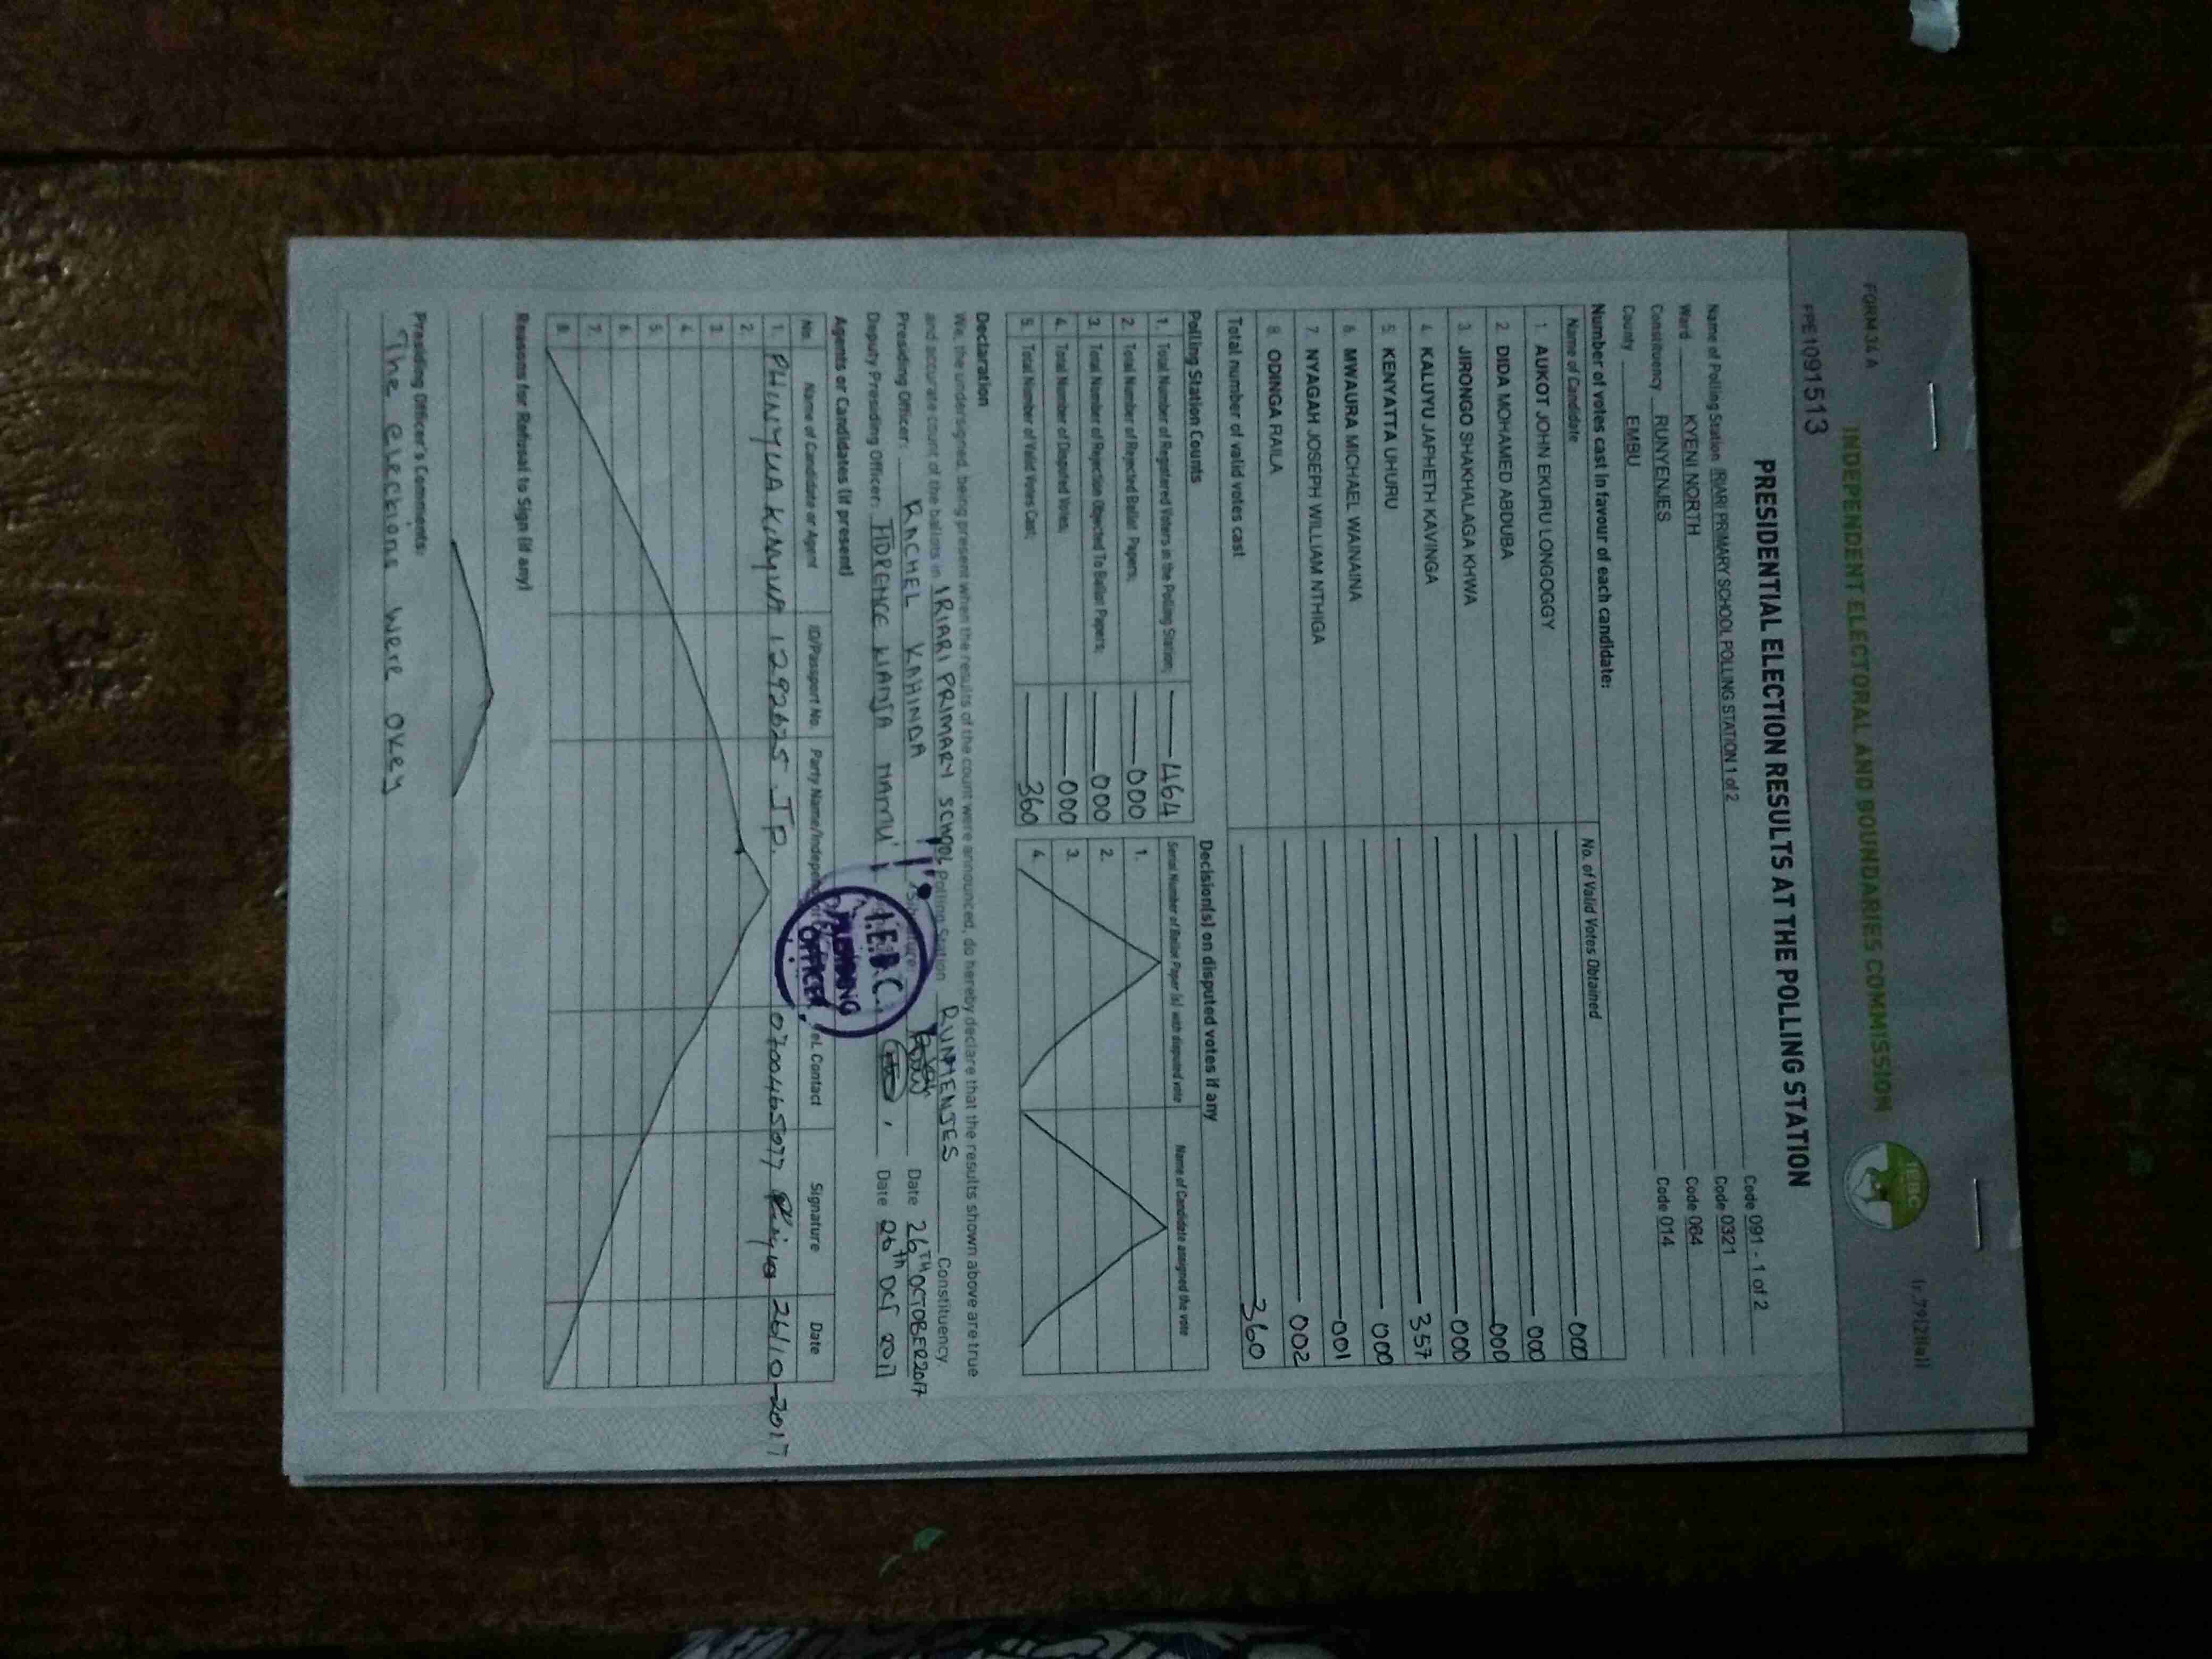 FORM 34 A
INDEPENDENT ELECTORAL AND BOUNDARIES COMMISSION
IEBC
FPE1091513
PRESIDENTIAL ELECTION RESULTS AT THE POLLING STATION
Name of Polling Station IRIARI PRIMARY SCHOOL POLLING STATION 1 of 2 Code 091 - 1 of 2
Ward KYENI NORTH Code 0321
Constituency RUNYENJES Code 064
County EMBU Code 014
Number of votes cast in favour of each candidate:
Name of Candidate No. of Valid Votes Obtained
1. AUKOT JOHN EKURU LONGOGGY 000
2. DIDA MOHAMED ABDUBA 000
3. JIRONGO SHAKHALAGA KHWA 000
4. KALUYU JAPHETH KAVINGA 000
5. KENYATTA UHURU 357
6. MWAURA MICHAEL WAINAINA 000
7. NYAGAH JOSEPH WILLIAM NTHIGA 001
8. ODINGA RAILA 002
Total number of valid votes cast 360
Polling Station Counts
1. Total Number of Registered Voters in the Polling Station; 464
2. Total Number of Rejected Ballot Papers; 000
3. Total Number of Rejection Objected To Ballot Papers; 000
4. Total Number of Disputed Votes; 000
5. Total Number of Valid Votes Cast; 360
Decision(s) on disputed votes if any
Serial Number of Ballot Paper (s) with disputed vote Name of Candidate assigned the vote
1.
2.
3.
4.
Declaration
We, the undersigned, being present when the results of the count were announced, do hereby declare that the results shown above are true
and accurate count of the ballots in IRIARI PRIMARY SCHOOL Polling Station RUNYENJES Constituency.
Presiding Officer: RACHEL KAHINDA Signature: Date 26TH OCTOBER 2017
Deputy Presiding Officer: FLORENCE Date 26th OCT 2017
I.E.B.C.
PRESIDING
OFFICER
Agents or Candidates (if present)
No. Name of Candidate or Agent ID/Passport No. Party Name/Independent Tel. Contact Signature Date
1. PHINYUA KINYUA 1292625 J.P. 0700465077 26/10-2017
2.
3.
4.
5.
6.
7.
8.
Reasons for Refusal to Sign (if any)
Presiding Officer's Comments:
The eleckions were okey